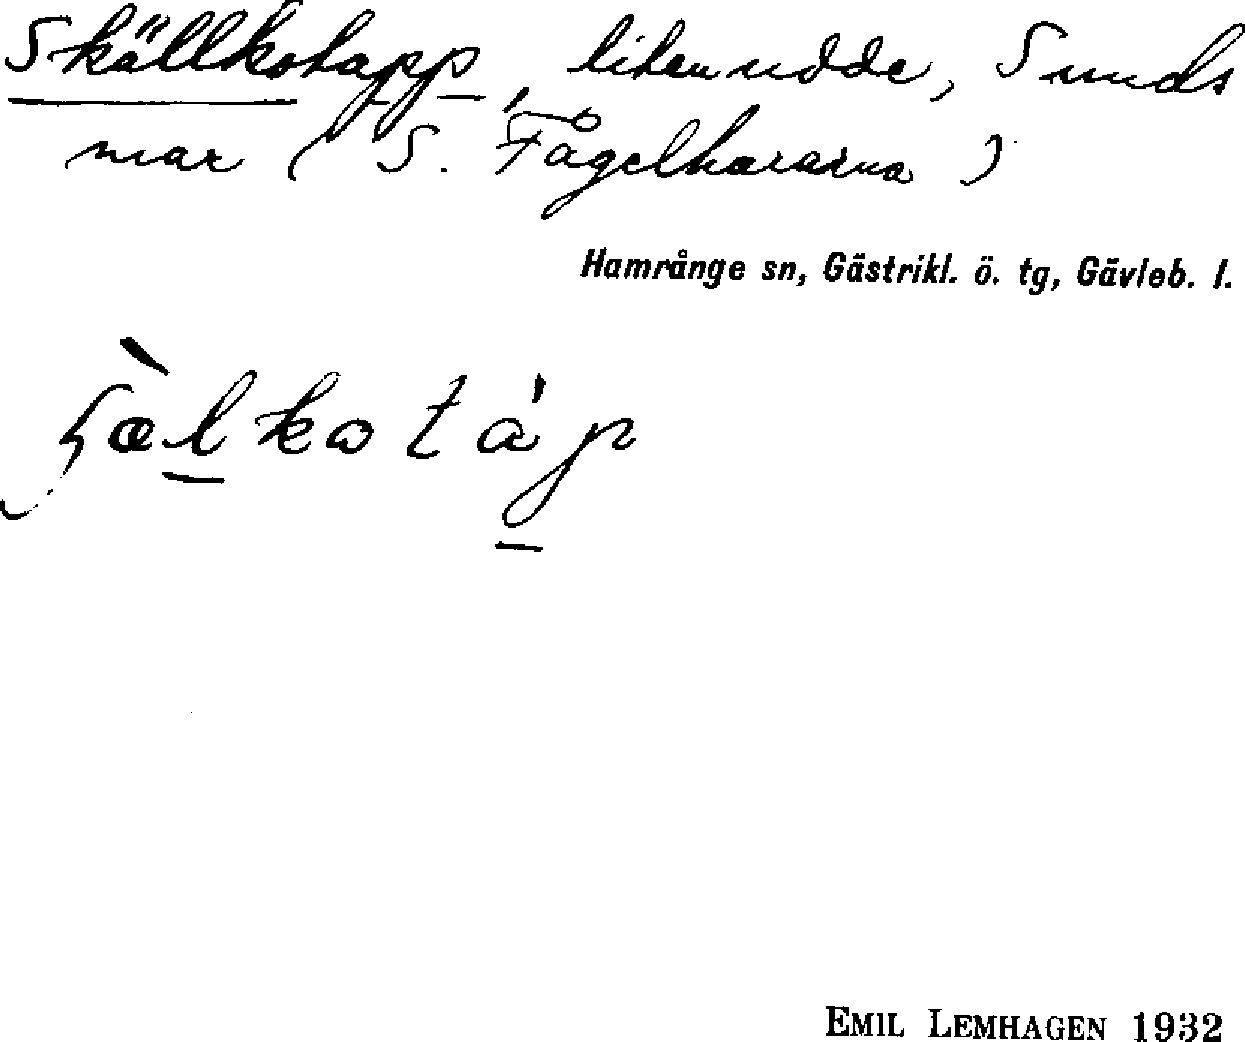 Skällkotapp, liten udde, Sunds
mar (S. Fågelhararna)
Hamrånge sn, Gästrikl. ö. tg, Gävleb. l.
EMIL LEMHAGEN 1932